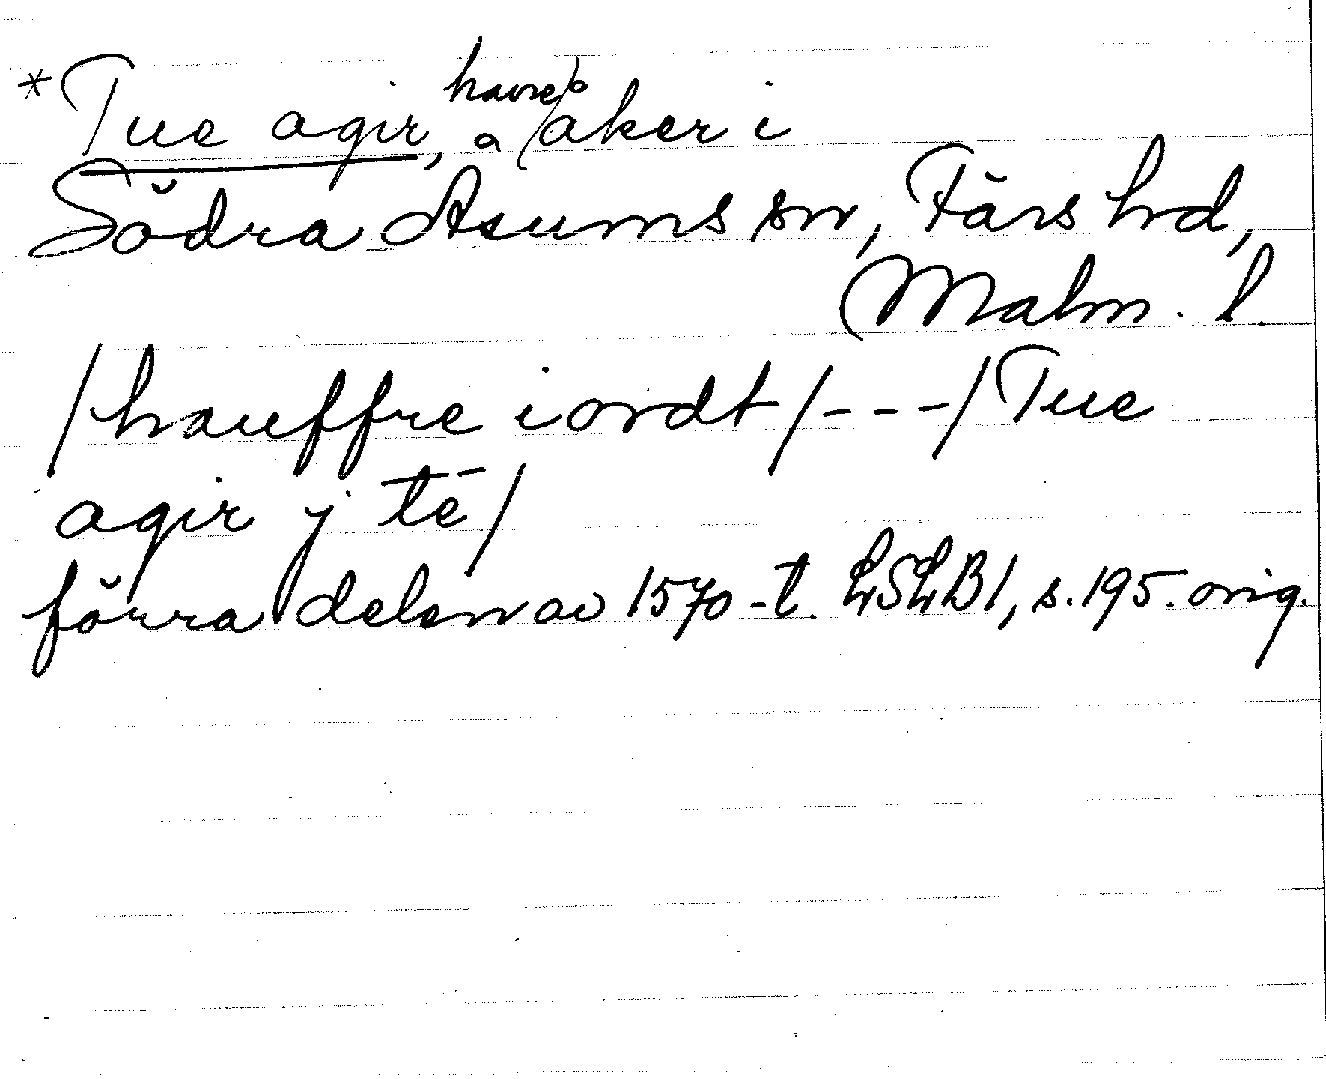 *Tue agir, a havre/åker i
Södra Åsums sn, Färs hd,
Malm. l.
/hauffre iordt/---/Tue
agir j tē/
förra delen av 1570-t. LSLB1, s. 195. orig.